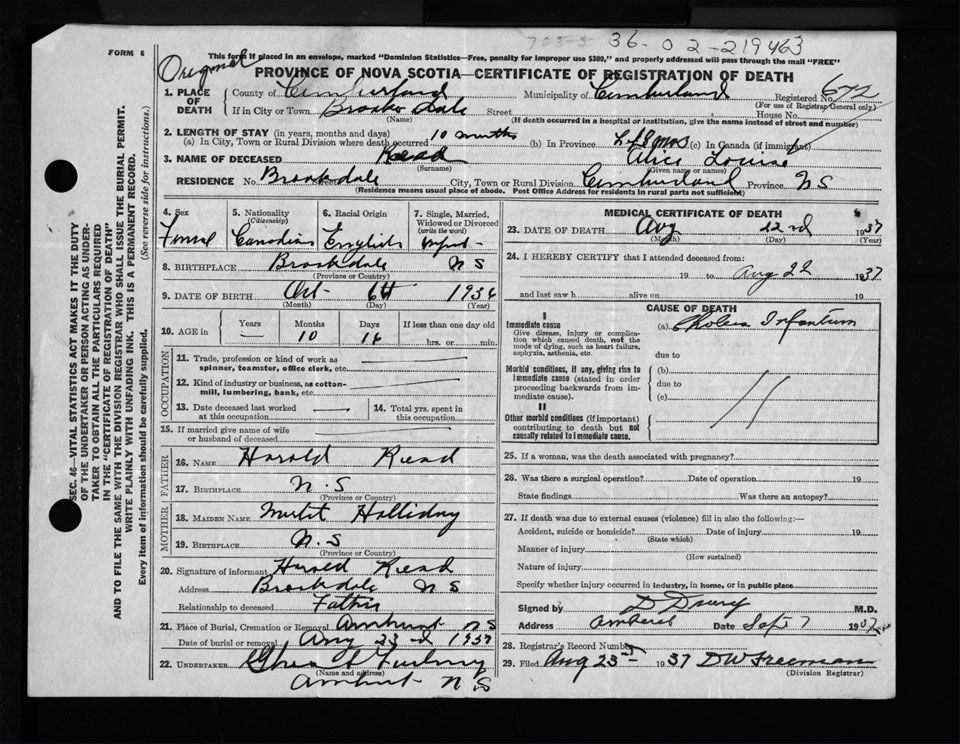 36-02-219463
FORM 6
This form if placed in an envelope, marked "Dominion Statistics—Free, penalty for improper use $300," and properly addressed will pass through the mail "FREE"
Original
PROVINCE OF NOVA SCOTIA—CERTIFICATE OF REGISTRATION OF DEATH
1. PLACE OF DEATH County of Cumberland Municipality of Cumberland Registered No. 672
(For use of Registrar General only)
If in City or Town Brookdale Street House No.
(Name) (If death occurred in a hospital or institution, give the name instead of street and number)
2. LENGTH OF STAY (in years, months and days)
(a) In City, Town or Rural Division where death occurred 10 months (b) In Province (c) In Canada (if immigrant)
3. NAME OF DECEASED Read Alice Louise
(Surname) (Given name or names)
RESIDENCE No. Brookdale Street City, Town or Rural Division Cumberland Province N S
(Residence means usual place of abode. Post Office Address for residents in rural parts not sufficient)
4. Sex 5. Nationality (Citizenship) 6. Racial Origin 7. Single, Married, Widowed or Divorced (write the word)
Canadian English
8. BIRTHPLACE Brookdale N S
(Province or Country)
9. DATE OF BIRTH Oct 6th 1936
(Month) (Day) (Year)
10. AGE in Years Months Days If less than one day old
10 16 hrs. or min.
OCCUPATION
11. Trade, profession or kind of work as spinner, teamster, office clerk, etc.
12. Kind of industry or business, as cotton-mill, lumbering, bank, etc.
13. Date deceased last worked at this occupation 14. Total yrs. spent in this occupation
15. If married give name of wife or husband of deceased
FATHER
16. NAME Harold Read
17. BIRTHPLACE N.S
(Province or Country)
MOTHER
18. MAIDEN NAME Halliday
19. BIRTHPLACE N.S
(Province or Country)
20. Signature of informant Harold Read
Address Brookdale N S
Relationship to deceased Father
21. Place of Burial, Cremation or Removal Amherst N S
Date of burial or removal Aug 23rd 1937
22. UNDERTAKER
(Name and address)
Amherst N S
MEDICAL CERTIFICATE OF DEATH
23. DATE OF DEATH Aug 22nd 1937
(Month) (Day) (Year)
24. I HEREBY CERTIFY that I attended deceased from:
19 to Aug 22 1937
and last saw h alive on 19
CAUSE OF DEATH
I
Immediate cause
Give disease, injury or complication which caused death, not the mode of dying, such as heart failure, asphyxia, asthenia, etc.
(a) Cholera Infantum
due to
Morbid conditions, if any, giving rise to immediate cause (stated in order proceeding backwards from immediate cause).
(b)
due to
(c)
II
Other morbid conditions (if important) contributing to death but not causally related to immediate cause.
25. If a woman, was the death associated with pregnancy?
26. Was there a surgical operation? Date of operation 19
State findings Was there an autopsy?
27. If death was due to external causes (violence) fill in also the following:—
Accident, suicide or homicide? Date of injury 19
(State which)
Manner of injury
(How sustained)
Nature of injury
Specify whether injury occurred in industry, in home, or in public place
Signed by M.D.
Address Amherst Date Sept 7 1937
28. Registrar's Record Number
29. Filed Aug 25 1937 DW Freeman
(Division Registrar)
SEC. 46—VITAL STATISTICS ACT MAKES IT THE DUTY
OF THE UNDERTAKER OR PERSON ACTING AS UNDER-
TAKER TO OBTAIN ALL THE PARTICULARS REQUIRED
IN THE "CERTIFICATE OF REGISTRATION OF DEATH"
AND TO FILE THE SAME WITH THE DIVISION REGISTRAR WHO SHALL ISSUE THE BURIAL PERMIT.
WRITE PLAINLY WITH UNFADING INK. THIS IS A PERMANENT RECORD.
Every item of information should be carefully supplied. (See reverse side for instructions.)